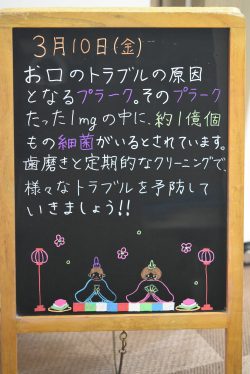 3月10日(金)
お口のトラブルの原因
となるプラーク。そのプラーク
たった1mgの中に、約1億個
もの細菌がいるとされています。
歯磨きと定期的なクリーニングで、
様々なトラブルを予防して
いきましょう!!